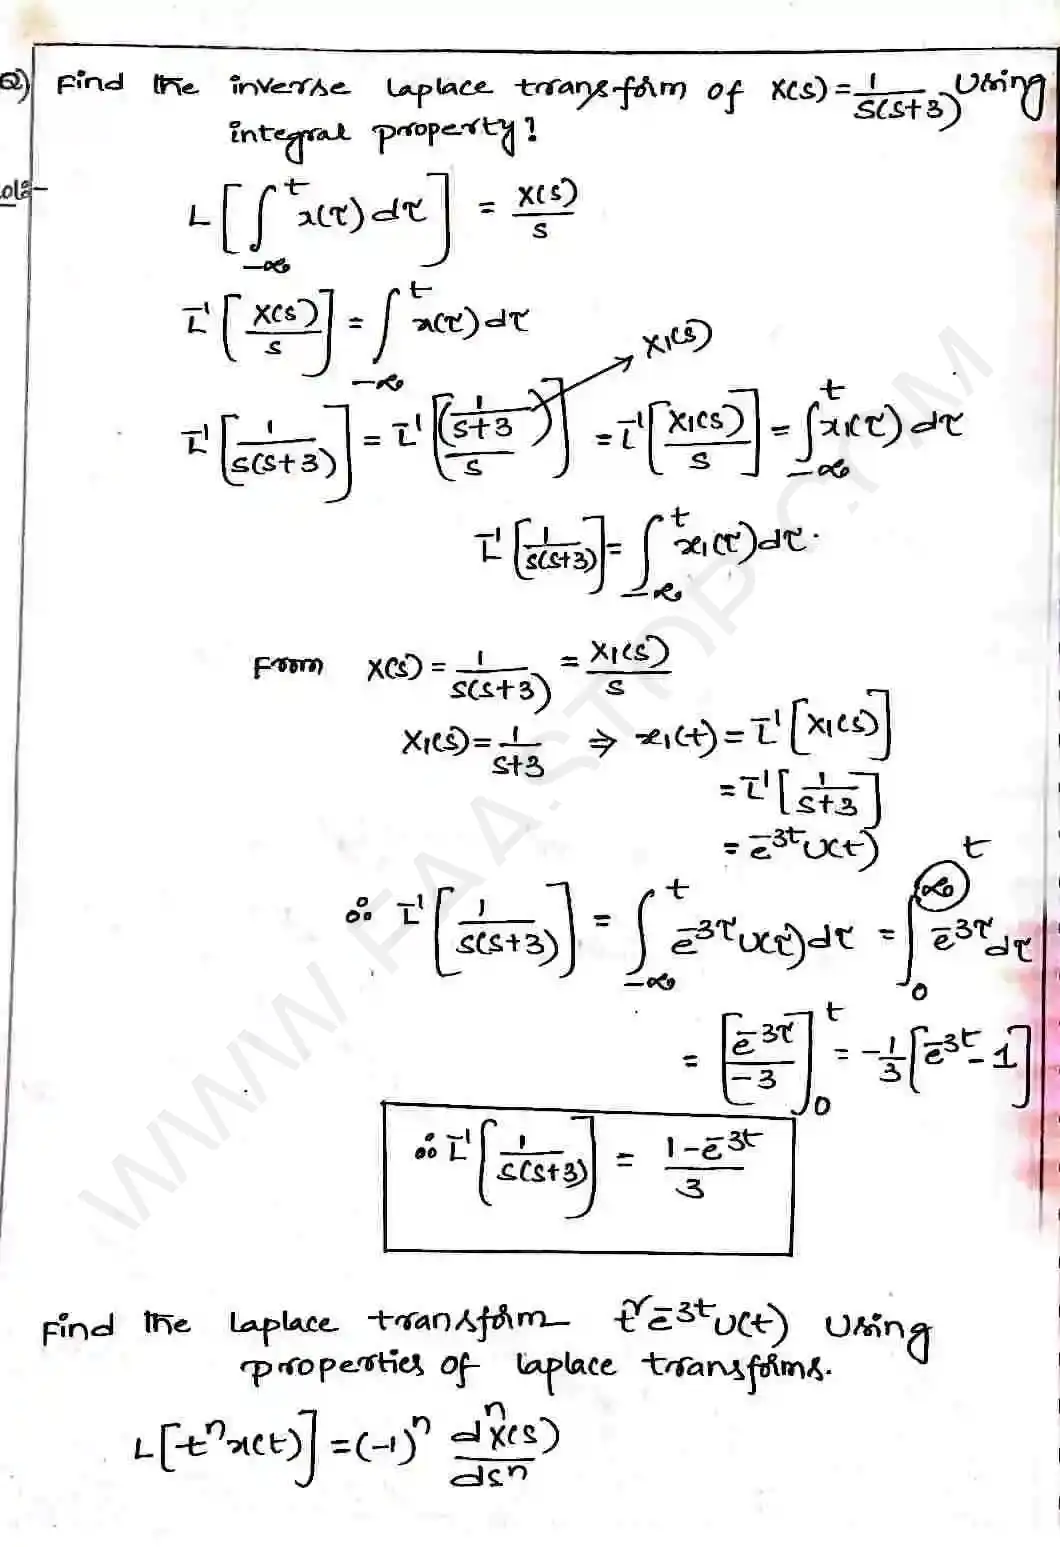 Q) Find the inverse Laplace transform of X(s) = 1/S(S+3) Using
integral property?
L[∫_{-∞}^{t} x(τ) dτ] = X(s)/s
L⁻¹[X(s)/s] = ∫_{-∞}^{t} x(τ) dτ
X₁(s)
L⁻¹[1/s(s+3)] = L⁻¹[(1/s+3)/s] = L⁻¹[X₁(s)/s] = ∫_{-∞}^{t} x₁(τ) dτ
L⁻¹[1/s(s+3)] = ∫_{-∞}^{t} x₁(τ) dτ.
From X(s) = 1/s(s+3) = X₁(s)/s
X₁(s) = 1/s+3 ⇒ x₁(t) = L⁻¹[X₁(s)]
= L⁻¹[1/s+3]
= e^{-3t} u(t)
∴ L⁻¹[1/s(s+3)] = ∫_{-∞}^{t} e^{-3τ} u(τ) dτ = ∫_{0}^{∞ t} e^{-3τ} dτ
= [e^{-3τ}/-3]_{0}^{t} = -1/3 [e^{-3t} - 1]
∴ L⁻¹[1/s(s+3)] = 1-e^{-3t}/3
Find the Laplace transform t² e^{-3t} u(t) Using
properties of laplace transforms.
L[tⁿ x(t)] = (-1)ⁿ dⁿX(s)/dsⁿ